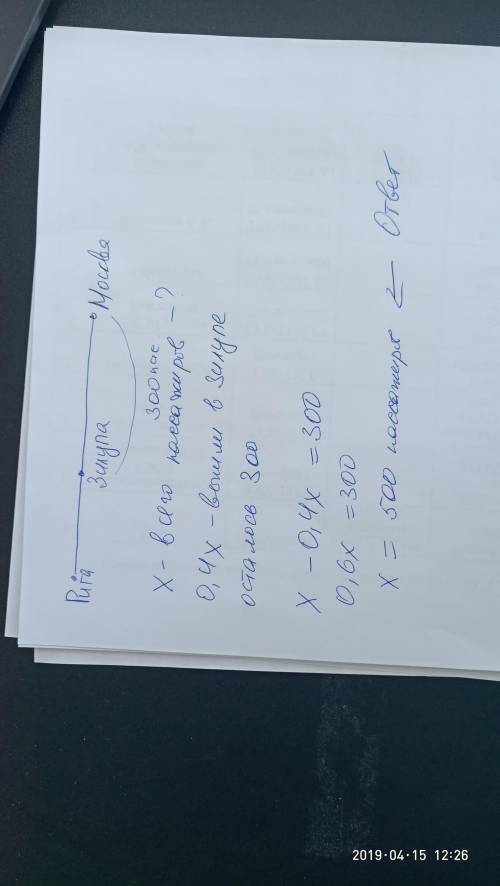 Рига Зилупа Москва
300 пас
X - всего пассажиров - ?
0,4x - вышли в Зилупе
осталось 300
X - 0,4x = 300
0,6x = 300
X = 500 пассажиров ← Ответ
2019-04-15 12:26